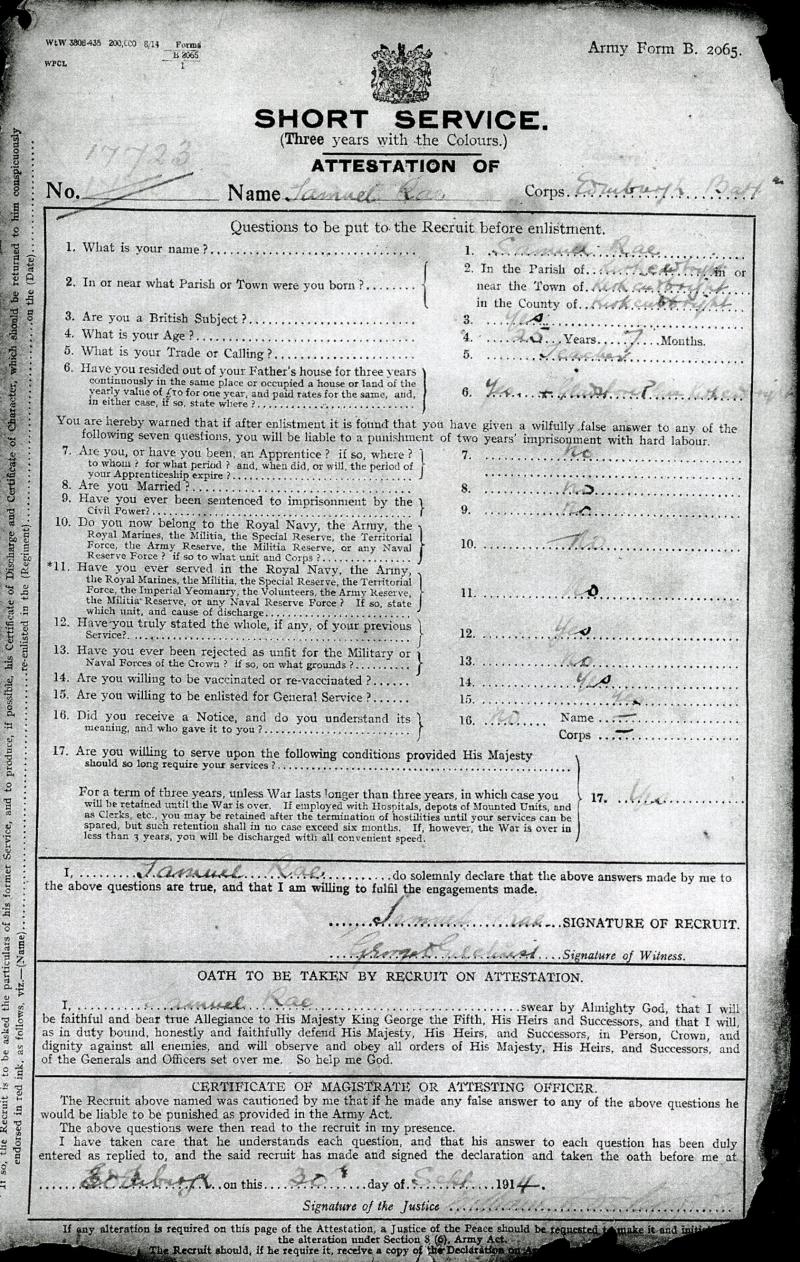 W&W 3808-435 200,000 8/14 Forms
B 2065
1
WPCL
Army Form B. 2065.
SHORT SERVICE.
(Three years with the Colours.)
17723
ATTESTATION OF
No. Name Samuel Rae Corps. Edinburgh Batt
Questions to be put to the Recruit before enlistment.
1. What is your name? 1. Samuel Rae
2. In or near what Parish or Town were you born? 2. In the Parish of Kirkcudbright in or
near the Town of Kirkcudbright
in the County of Kirkcudbright
3. Are you a British Subject? 3. Yes
4. What is your Age? 4. 25 Years 7 Months.
5. What is your Trade or Calling? 5. Teacher
6. Have you resided out of your Father's house for three years
continuously in the same place or occupied a house or land of the
yearly value of £10 for one year, and paid rates for the same, and,
in either case, if so, state where? 6. Yes
You are hereby warned that if after enlistment it is found that you have given a wilfully false answer to any of the
following seven questions, you will be liable to a punishment of two years' imprisonment with hard labour.
7. Are you, or have you been, an Apprentice? if so, where? 7. No
to whom? for what period? and, when did, or will, the period of
your Apprenticeship expire?
8. Are you Married? 8. No
9. Have you ever been sentenced to imprisonment by the
Civil Power? 9. No
10. Do you now belong to the Royal Navy, the Army, the
Royal Marines, the Militia, the Special Reserve, the Territorial
Force, the Army Reserve, the Militia Reserve, or any Naval
Reserve Force? if so to what unit and Corps? 10. No
*11. Have you ever served in the Royal Navy, the Army,
the Royal Marines, the Militia, the Special Reserve, the Territorial
Force, the Imperial Yeomanry, the Volunteers, the Army Reserve,
the Militia Reserve, or any Naval Reserve Force? If so, state
which unit, and cause of discharge 11. No
12. Have you truly stated the whole, if any, of your previous
Service? 12. Yes
13. Have you ever been rejected as unfit for the Military or
Naval Forces of the Crown? if so, on what grounds? 13. No
14. Are you willing to be vaccinated or re-vaccinated? 14. Yes
15. Are you willing to be enlisted for General Service? 15. Yes
16. Did you receive a Notice, and do you understand its
meaning, and who gave it to you? 16. No Name —
Corps —
17. Are you willing to serve upon the following conditions provided His Majesty
should so long require your services?
For a term of three years, unless War lasts longer than three years, in which case you
will be retained until the War is over. If employed with Hospitals, depots of Mounted Units, and
as Clerks, etc., you may be retained after the termination of hostilities until your services can be
spared, but such retention shall in no case exceed six months. If, however, the War is over in
less than 3 years, you will be discharged with all convenient speed. 17. Yes
I, Samuel Rae do solemnly declare that the above answers made by me to
the above questions are true, and that I am willing to fulfil the engagements made.
Samuel Rae SIGNATURE OF RECRUIT.
George Signature of Witness.
OATH TO BE TAKEN BY RECRUIT ON ATTESTATION.
I, Samuel Rae swear by Almighty God, that I will
be faithful and bear true Allegiance to His Majesty King George the Fifth, His Heirs and Successors, and that I will,
as in duty bound, honestly and faithfully defend His Majesty, His Heirs, and Successors, in Person, Crown, and
dignity against all enemies, and will observe and obey all orders of His Majesty, His Heirs, and Successors, and
of the Generals and Officers set over me. So help me God.
CERTIFICATE OF MAGISTRATE OR ATTESTING OFFICER.
The Recruit above named was cautioned by me that if he made any false answer to any of the above questions he
would be liable to be punished as provided in the Army Act.
The above questions were then read to the recruit in my presence.
I have taken care that he understands each question, and that his answer to each question has been duly
entered as replied to, and the said recruit has made and signed the declaration and taken the oath before me at
Edinburgh on this 30 day of Sept 1914.
Signature of the Justice
If any alteration is required on this page of the Attestation, a Justice of the Peace should be requested to make it and initial
the alteration under Section 8 (6), Army Act.
The Recruit should, if he require it, receive a copy of the Declaration on
so, the Recruit is to be asked the particulars of his former Service, and to produce, if possible, his Certificate of Discharge and Certificate of Character, which should be returned to him conspicuously
endorsed in red ink, as follows, viz.—(Name) re-enlisted in the (Regiment) on the (Date)